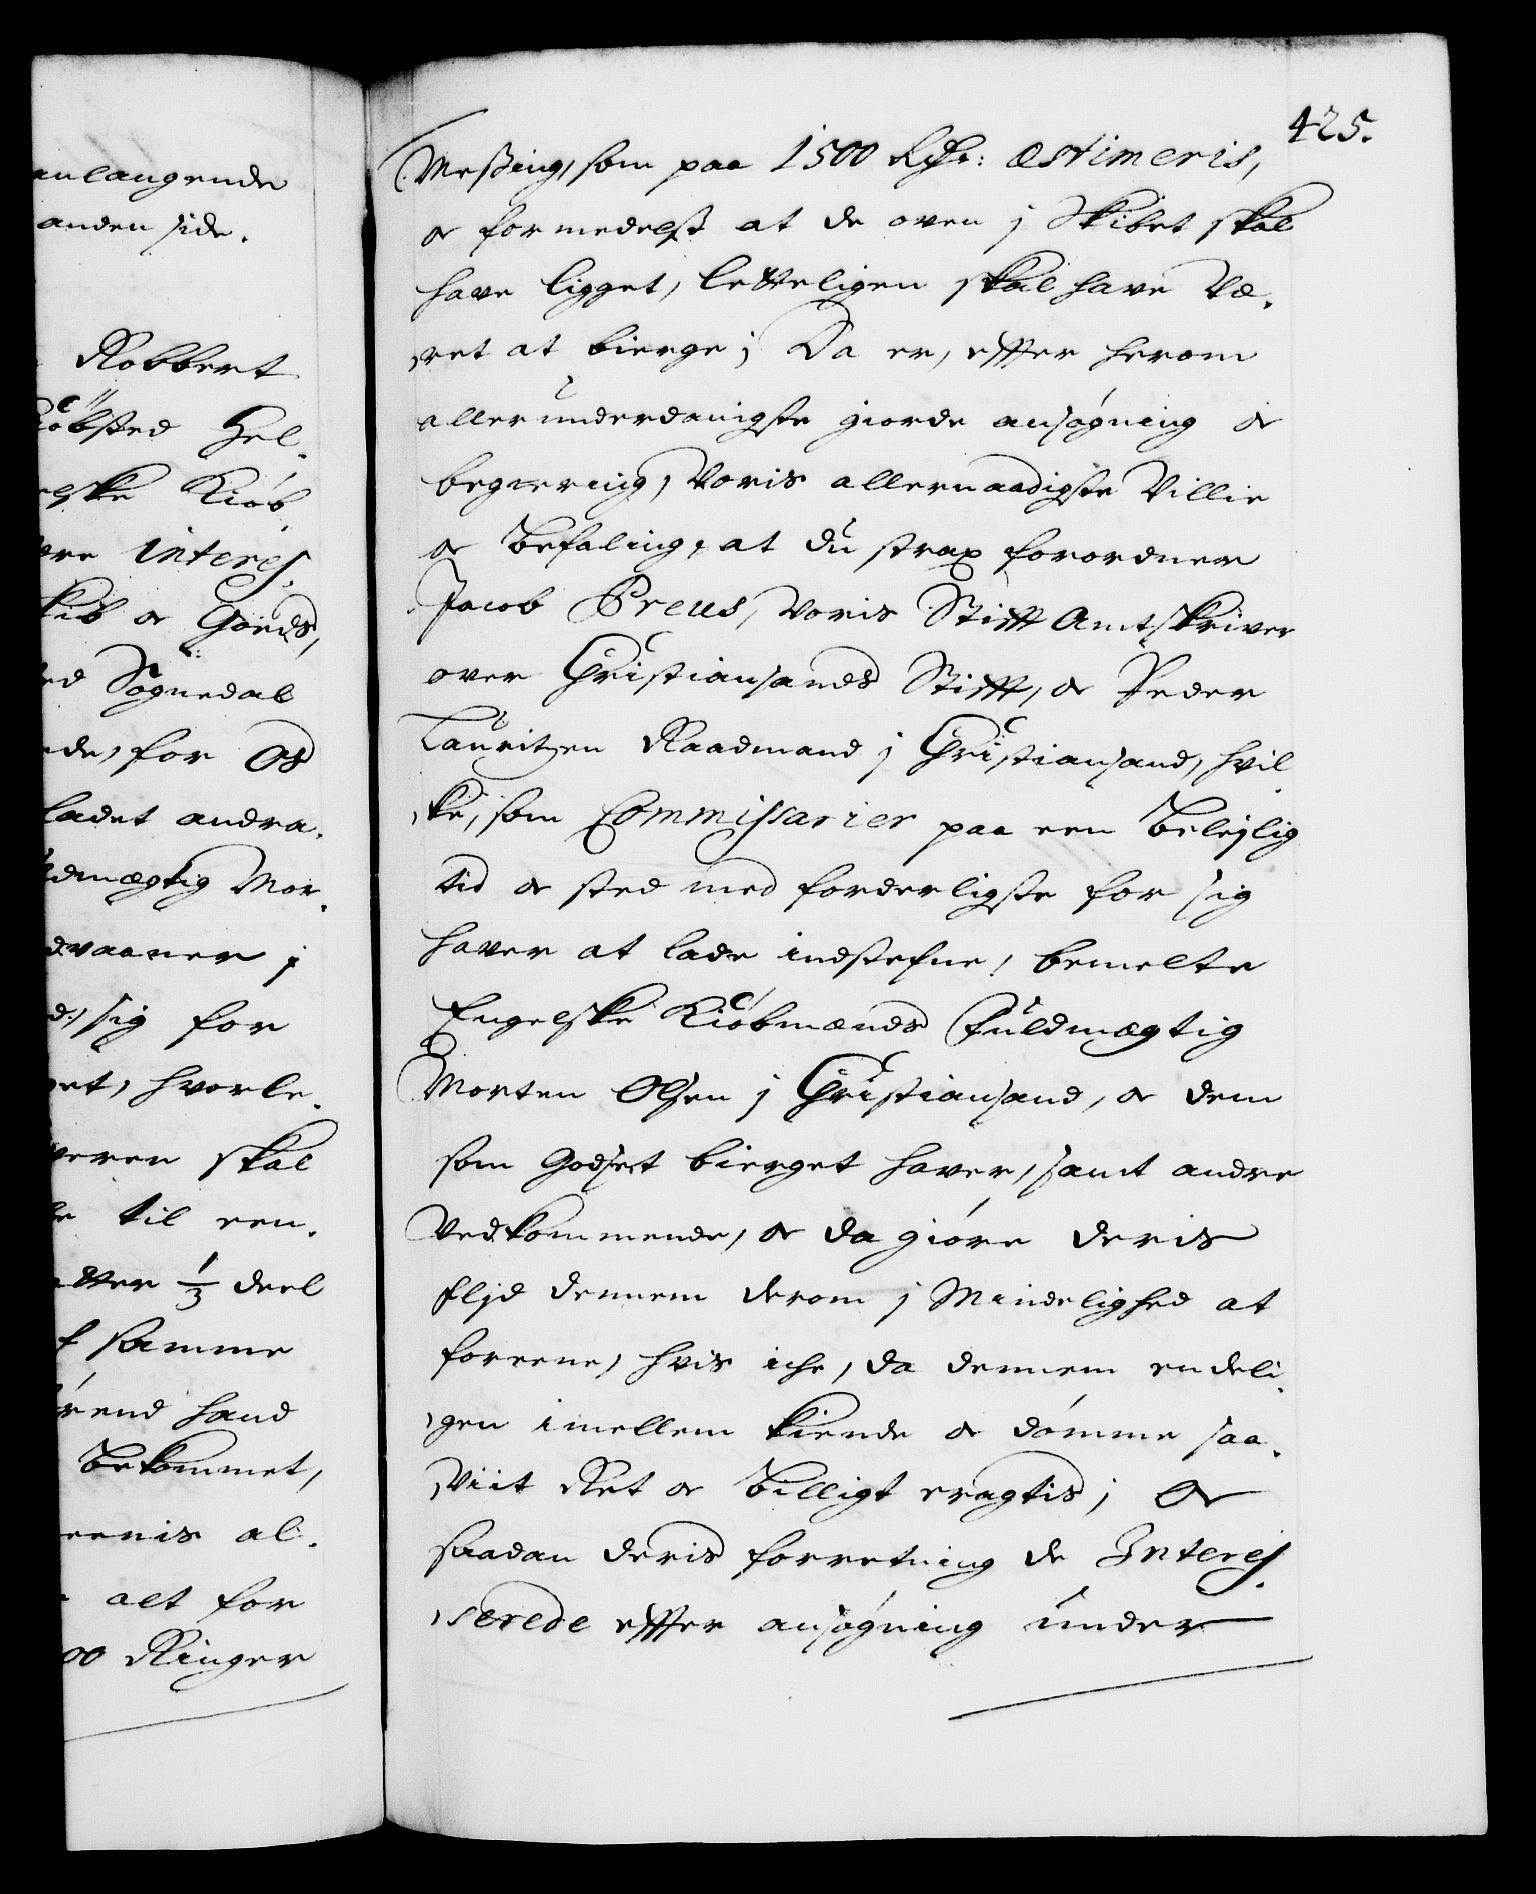 anlangende
anden side.
Robbert
Kiöbsted Hel-
elske Kiøb
interes-
kib oc Goeds,
ed Sognedal
de, for Os
ladet andra-
ldmægtig Mor-
dvaaner j
sig for
get, hvorle-
veren skal
til een-
etter 1/3 deel
f samme
rend hand
bekommet,
eenis al-
alt for
00 Ringer
425.
Messing, som paa 1500 Rdr: æstimeris,
oc formedelst at de oven j Skibet skal
have ligget, letteligen skal have væ-
ret at bierge; Da er, effter herom
allerunderdanigste giorde ansøgning oc
begiering, Voris allernaadigste Villie
oc Befaling, at du strax forordner
Jacob Preus, Voris Stifft Amtskriver
over Christiansands Stifft, oc Peder
Lauritzen Raadmand j Christiansand, hvil-
ke, som Commissarier paa een Beleylig
tid oc sted med forderligste for sig
haver at lade indstefne, bemelte
Engelske Kiöbmænds Fuldmægtig
Morten Olsen j Christiansand, oc dem
som Godset bierget haver, samt andre
Vedkommende, oc da giøre deris
flid dennem derom j Mindelighed at
foreene, hvis iche, da dennem endeli-
gen imellem kiende oc dømme saa-
viit Ret oc Billigt eragtis; Oc
saadan deris forretning de Interes-
serede effter ansøgning under